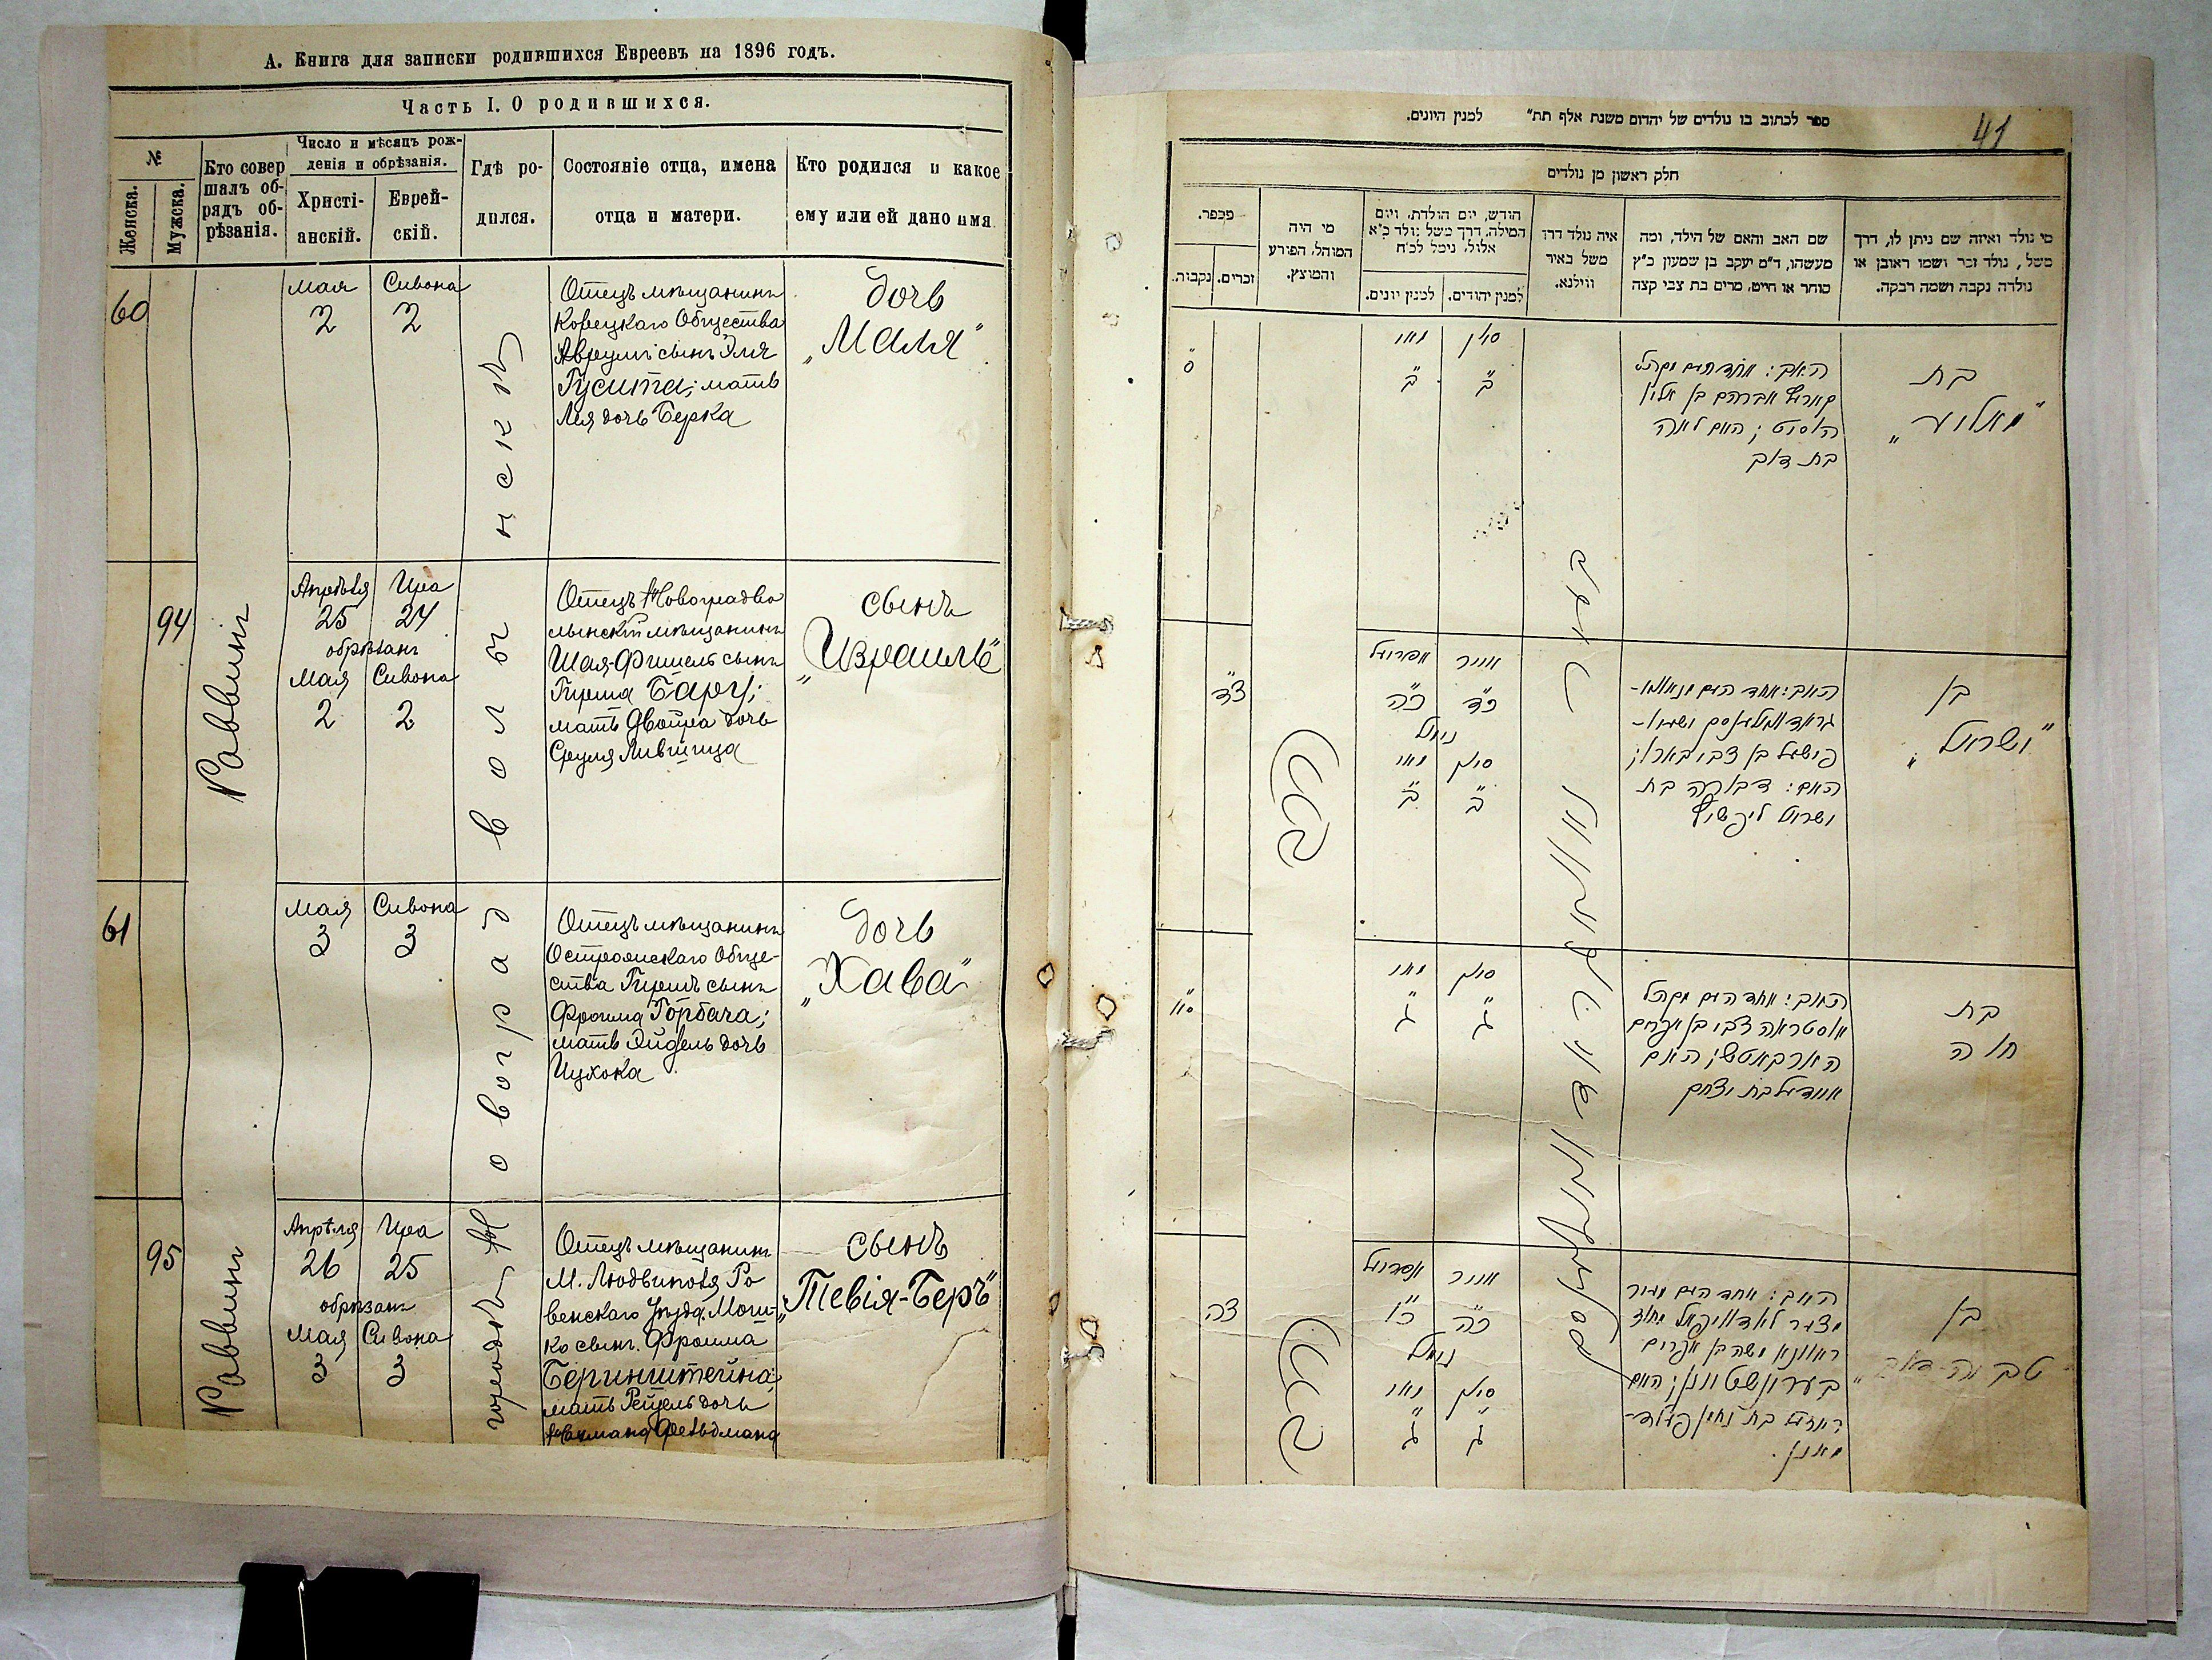 А. Книга для записки родившихся Евреевъ на 1896 годъ.
Часть I. О родившихся.
№
Женска.
Мужска.
Кто совер
шалъ об-
рядъ об-
рѣзанія.
Число и мѣсяцъ рож-
денія и обрѣзанія.
Христі-
анскій.
Еврей-
скій.
Гдѣ ро-
дился.
Состояніе отца, имена
отца и матери.
Кто родился и какое
ему или ей дано имя.
60
Мая
2
Сивона
2
Отецъ мѣщанинъ
Корецкаго Общества
Аврумъ сынъ Эля
Гусита; мать
Лея дочь Берка
дочь
„Маля"
94
Раввинъ
Апрѣля Ира
25 24
обрѣзанъ
Мая Сивона
2 2
Отецъ Новоградво
лынскій мѣщанинъ
Шая-Фишель сынъ
Гирша Барг;
мать Двойра дочь
Сруля Лившица
сынъ
„Израиль"
61
Мая Сивона
3 3
Отецъ мѣщанинъ
Острожскаго Обще-
ства Гиршъ сынъ
Фроима Горбача;
мать Эйдель дочь
Ицхока
дочь
„Хава"
95
Раввинъ
Апрѣля Ира
26 25
обрѣзанъ
Мая Сивона
3 3
Отецъ мѣщанинъ
М. Людвиполя Ро
венскаго уѣзда, Мош-
ко сынъ Фроима
Беринштейна;
мать Рейзель дочь
Нахмана Фельдмана
сынъ
„Тевія-Беръ"
городъ Новоградволынскъ
41
ספר לכתוב בו נולדים של יהדום משנת אלף תת" למנין היונים.
חלק ראשון מן נולדים
מי נולד ואיזה שם ניתן לו, דרך
משל, נולד זכר ושמו ראובן או
נולדה נקבה ושמה רבקה.
שם האב והאם של הילד, ומה
מעשהו, ד"מ יעקב בן שמעון כ"ץ
סוחר או חייט, מרים בת צבי קצה
איה נולד דרך
משל באיר
ווילנא.
חודש, יום הולדת, ויום
המילה, דרך משל נולד כ"א
אלול, נימל לכ"ח
למנין יהודים.
למנין יונים.
מי היה
המוהל, הפורע
והמוצץ.
מספר.
זכרים.
נקבות.
בת
„מאליע"
סיון מאי
ב ב
ס
האב: אחד הים מקהל
קארעץ אברהם בן אליו
האם לאה
בת דוב
בן
„ישראל"
צד
אייר אפריעל
כד כה
נימול
סיון מאי
ב ב
פישעל בן צבי בארג;
האם: דבורה בת
ישראל ליפשיץ
הרב
בת
חוה
סא
סיון מאי
ג ג
אסטראה צבי בן אפרים
הארבאטש; האם
איידעל בת יצחק
בן
„טביה-דוב"
צה
אייר אפריעל
כה כו
נימול
סיון מאי
ג ג
ראוונא משה בן אפרים
בערינשטיין; האם
רייזעל בת נחמן פעלד-
מאנן.
הרב